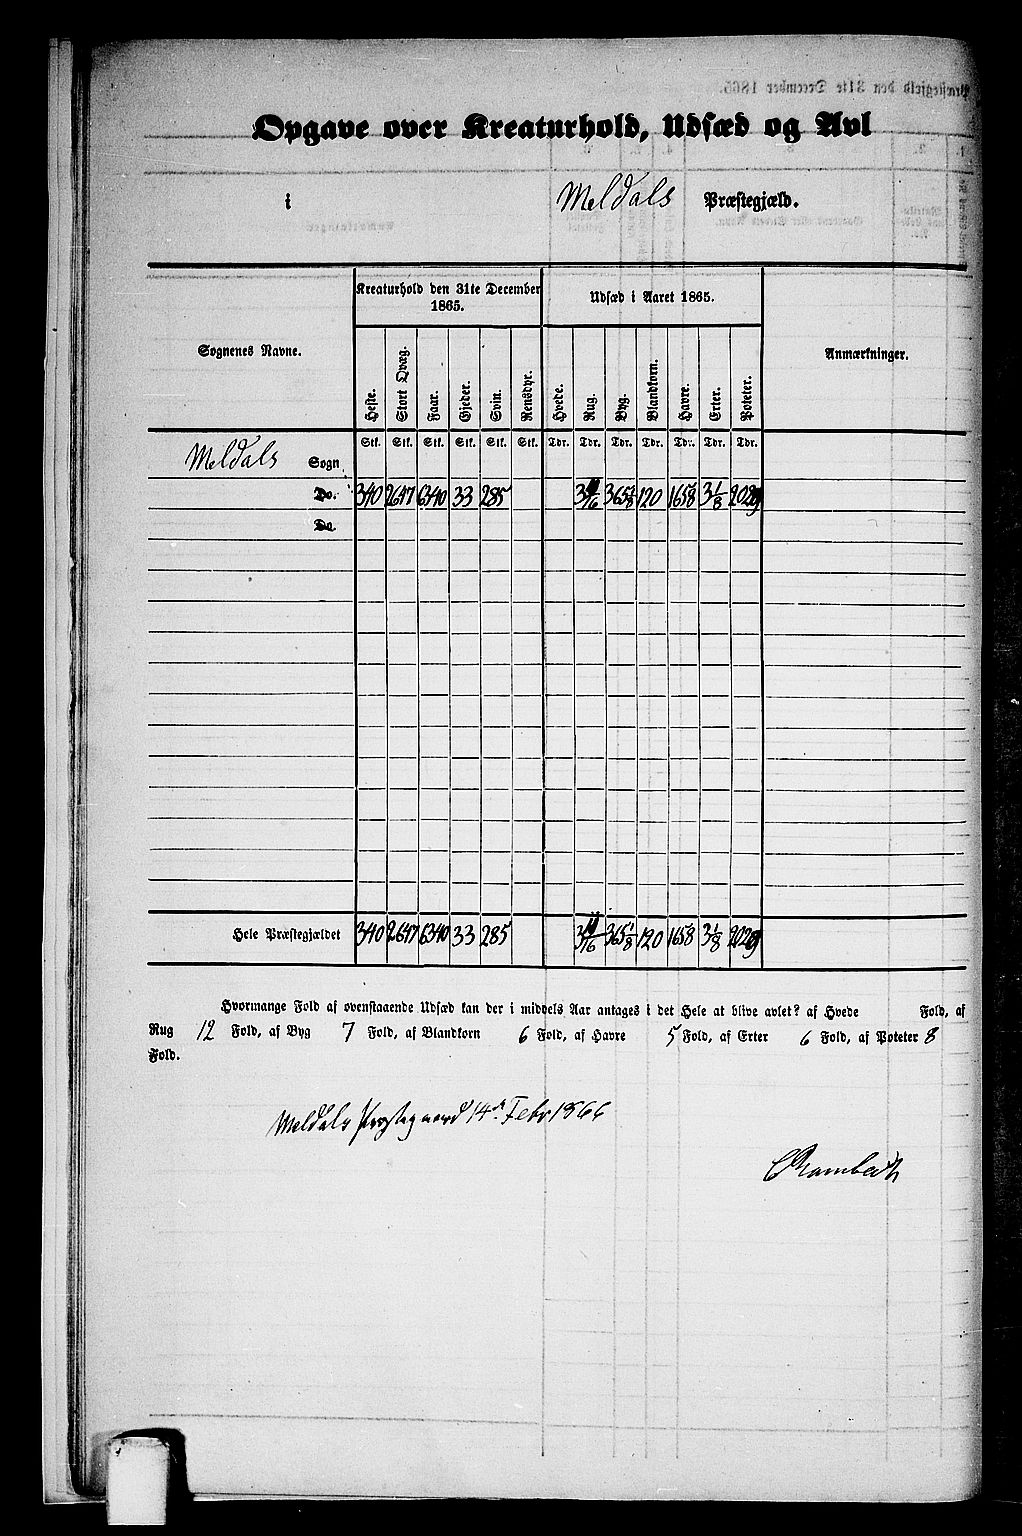 Opgave over Kreaturhold, Udsæd og Avl
i Meldals Præstegjæld.
Sognenes Navne. Kreaturhold den 31te December 1865. Udsæd i Aaret 1865. Anmærkninger.
Heste. Stort Qvæg. Faar. Gjeder. Svin. Rensdyr. Hvede. Rug. Byg. Blandkorn. Havre. Erter. Poteter.
Stk. Stk. Stk. Stk. Stk. Stk. Tdr. Tdr. Tdr. Tdr. Tdr. Tdr. Tdr.
Meldals Sogn
Do. 340 2647 6340 33 285 120 3 1/8
Do.
Hele Præstegjældet 340 2647 6340 33 285 3 11/16 365 1/8 120 1658 3 1/8
Hvormange Fold af ovenstaaende Udsæd kan der i middels Aar antages i det Hele at blive avlet? af Hvede Fold, af
Rug 12 Fold, af Byg 7 Fold, af Blandkorn 6 Fold, af Havre 5 Fold, af Erter 6 Fold, af Poteter 8
Fold.
Meldals Præstegaard 14de Febr 1866